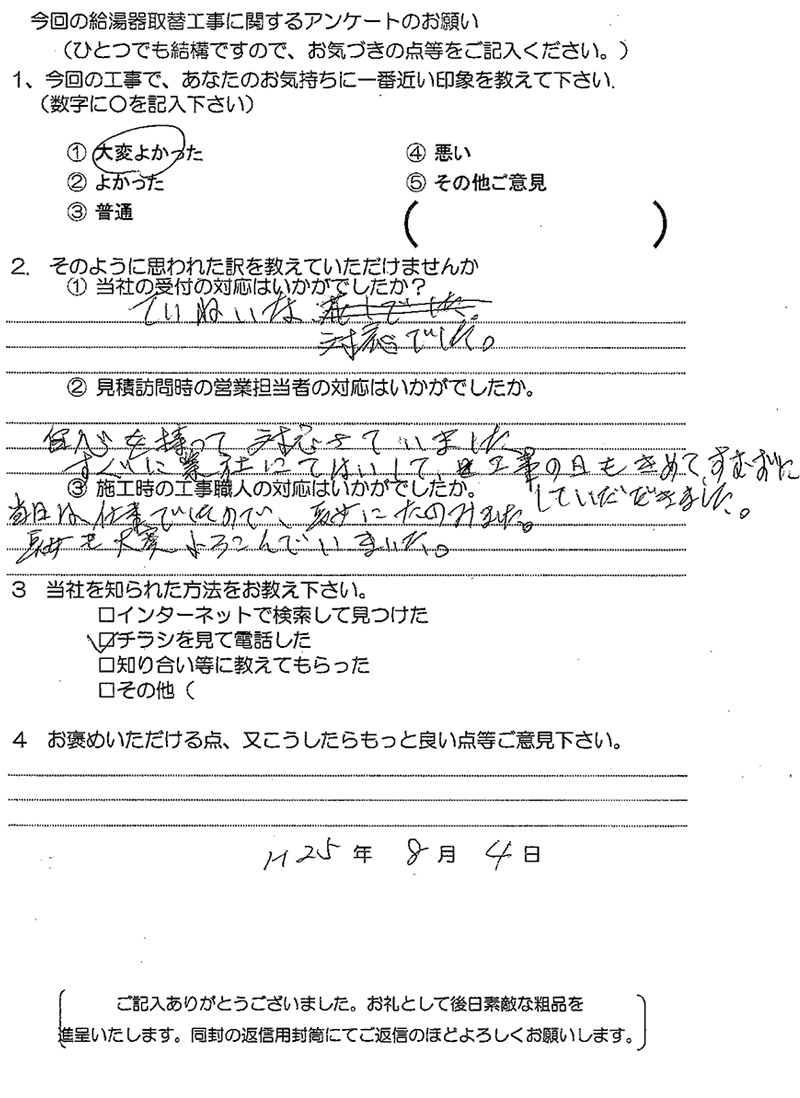 今回の給湯器取替工事に関するアンケートのお願い
（ひとつでも結構ですので、お気づきの点等をご記入ください。）
1、今回の工事で、あなたのお気持ちに一番近い印象を教えて下さい.
（数字に〇を記入下さい）
① 大変よかった
② よかった
③ 普通
④ 悪い
⑤ その他ご意見
（ ）
2. そのように思われた訳を教えていただけませんか
① 当社の受付の対応はいかがでしたか？
ていねいな
対応でした。
② 見積訪問時の営業担当者の対応はいかがでしたか。
を持って 対応さていました
すぐに業社にてはいして、工事の日もきめて、すむずに
していだだきました。
③ 施工時の工事職人の対応はいかがでしたか。
当日は仕事でしたので、にたのみました。
も大変よろこんでいました。
3 当社を知られた方法をお教え下さい。
□インターネットで検索して見つけた
☑チラシを見て電話した
□知り合い等に教えてもらった
□その他（
4 お褒めいただける点、又こうしたらもっと良い点等ご意見下さい。
H25年 8月 4日
ご記入ありがとうございました。お礼として後日素敵な粗品を
進呈いたします。同封の返信用封筒にてご返信のほどよろしくお願いします。